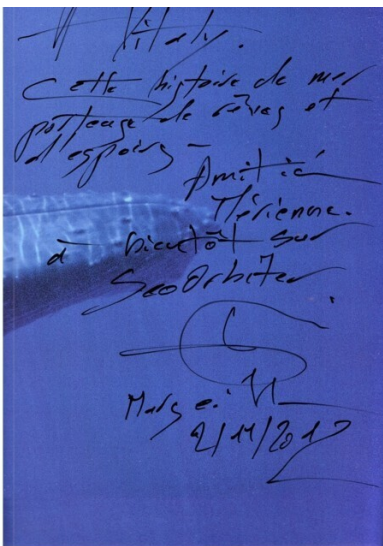 A Vitaly.
Cette histoire de mer
porteuse de rêves et
d'espoirs -
Amitié
Mérienne.
à bientôt sur
SeaOrbiter
2/11/201